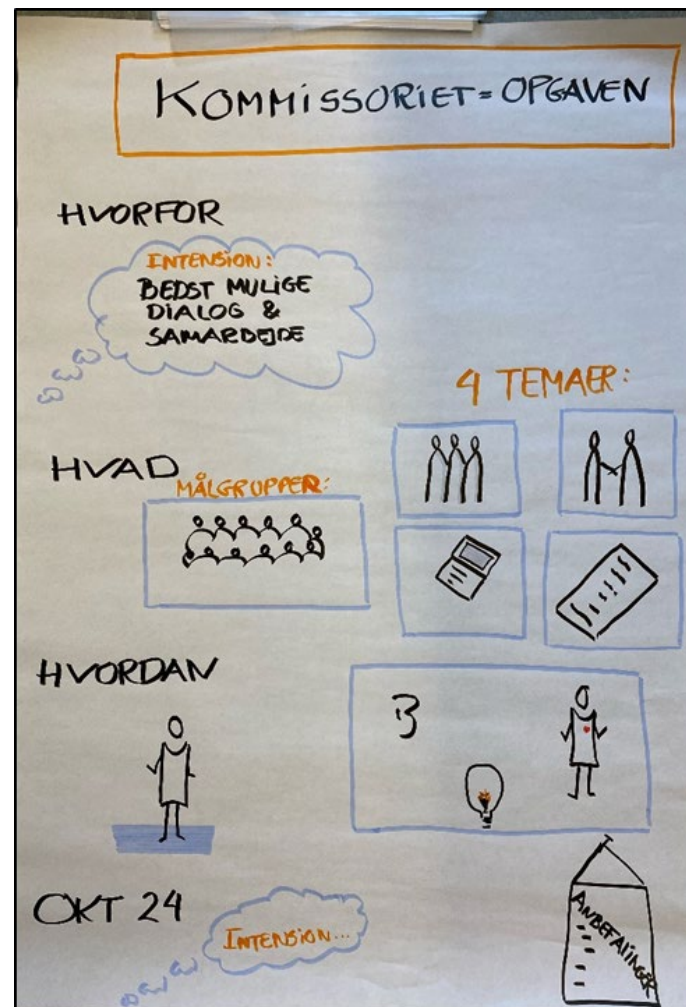 KOMMISSORIET = OPGAVEN
HVORFOR
INTENSION:
BEDST MULIGE
DIALOG &
SAMARBEJDE
4 TEMAER:
HVAD
MÅLGRUPPER:
HVORDAN
OKT 24
INTENSION...
ANBEFALINGER